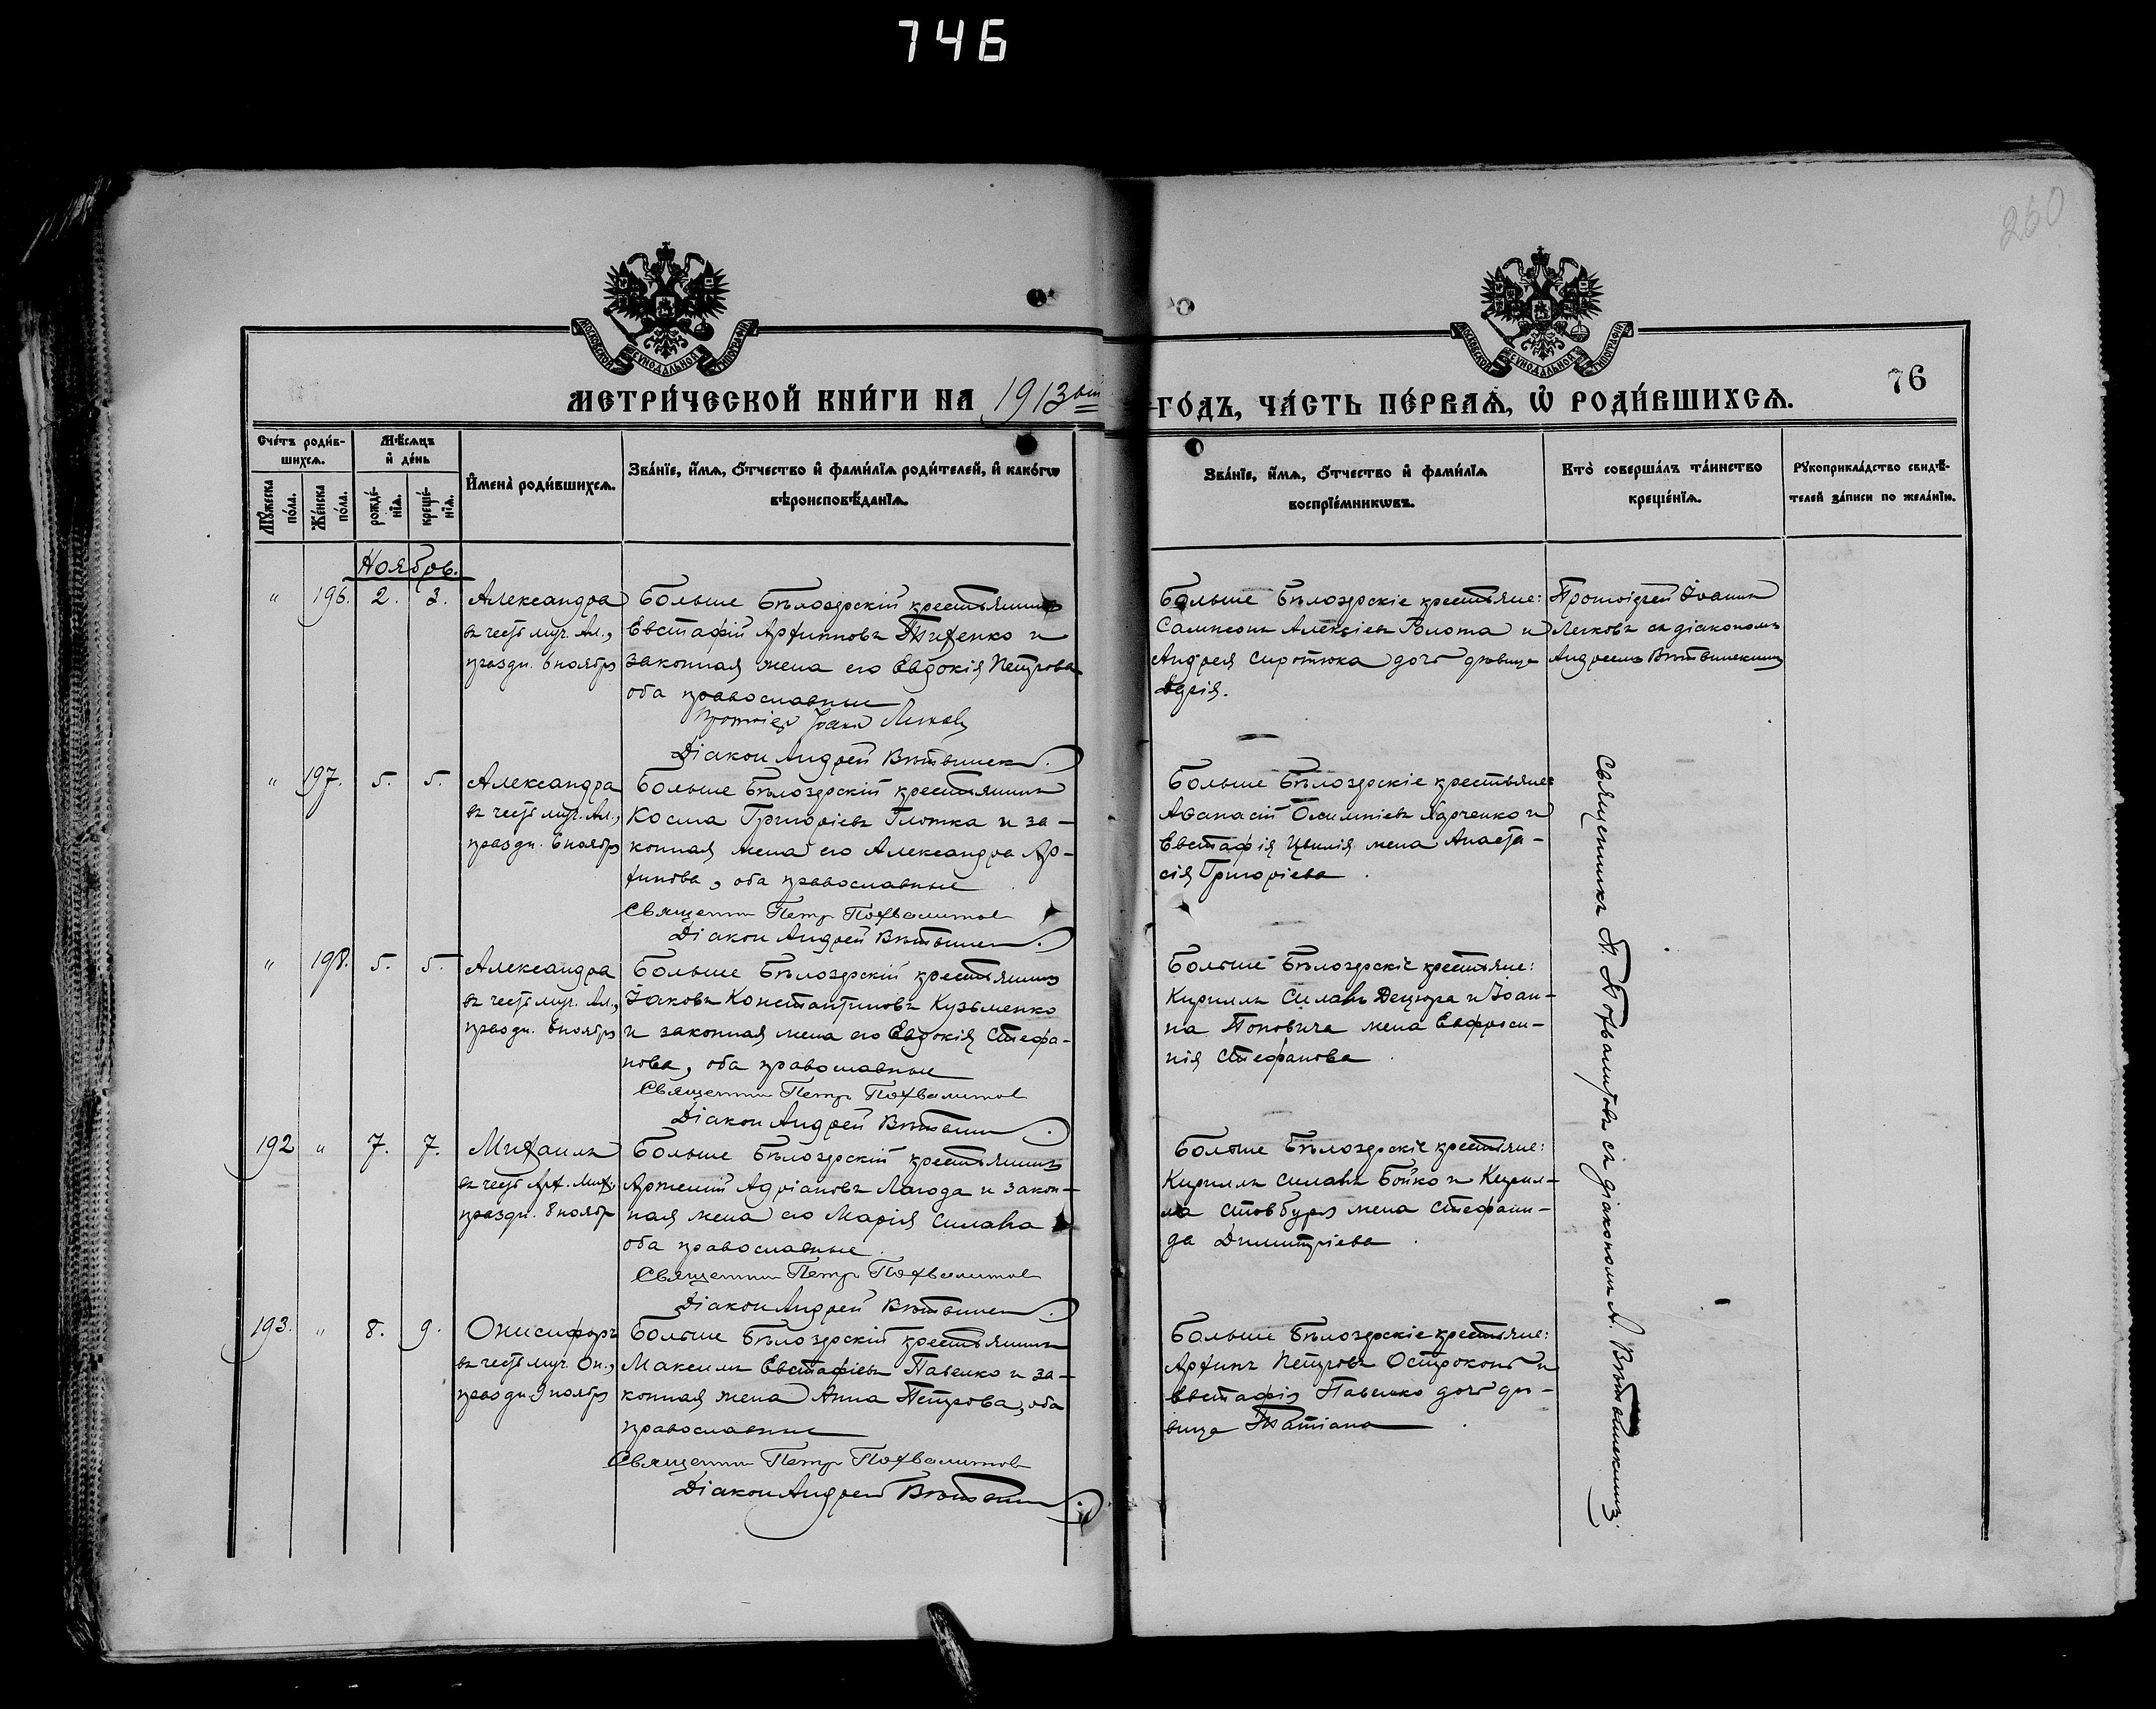 746
260
МОСКОВСКОЙ СѴНОДАЛЬНОЙ ТИПОГРАФІИ
МОСКОВСКОЙ СѴНОДАЛЬНОЙ ТИПОГРАФІИ
МЕТРИ́ЧЕСКОЙ КНИ́ГИ НА 1913ый ГО́ДЪ, ЧА́СТЬ ПЕ́РВАѦ, Ѡ҆ РОДИ́ВШИХСѦ.
76
Сче́тъ роди́в-
шихсѧ.
Мѣ́сѧцъ
и҆ де́нь
Му́жеска по́ла.
Же́нска по́ла.
рожде́-
нїѧ.
креще́-
нїѧ.
И҆мена̀ роди́вшихсѧ.
Зва́нїе, и҆́мѧ, ѻ҆́тчество и҆ фамѝлїѧ роди́телей, и҆ како́гѡ
вѣроисповѣ́данїѧ.
Зва́нїе, и҆́мѧ, ѻ҆́тчество и҆ фами́лїѧ
воспрїе́мникѡвъ.
Кто̀ соверша́лъ та́инство
креще́нїѧ.
Рꙋкоприкла́дство свидѣ́-
телей за́писи по жела́нїю.
Ноябрь.
" 196. 2. 3. Александра
въ честь муч. Ал.,
праздн. 6 ноября
Больше Бѣлозерскій крестьянинъ
Евстафій Архиповъ Тихенко и
законная жена его Евдокія Петрова
оба православные
Протоіер Іоанн Легков
Діакон Андрей Вѣтвинск.
Больше Бѣлозерскіе крестьяне:
Сампсонъ Алексіевъ Блота и
Андрея Сиротюка дочь дѣвица
Дарія.
Протоіерей Іоаннъ
Легковъ съ діакономъ
Андреемъ Вѣтвинскимъ
" 197. 5. 5. Александра
въ честь муч. Ал.,
праздн. 6 ноября
Больше Бѣлозерскій крестьянинъ
Косма Григоріевъ Глотка и за-
конная жена его Александра Ар-
хипова, оба православные
Священник Петр Похвалитов
Діакон Андрей Вѣтвинск.
Больше Бѣлозерскіе крестьяне:
Аѳанасій Олимпіевъ Харченко и
Евстафія Цвилія жена Анаста-
сія Григоріева
" 198. 5. 5. Александра
въ честь муч. Ал.,
праздн. 6 ноября
Больше Бѣлозерскій крестьянинъ
Іаковъ Константиновъ Кузьменко
и законная жена его Евдокія Стефа-
нова, оба православные
Священник Петр Похвалитов
Діакон Андрей Вѣтвин
Больше Бѣлозерскіе крестьяне:
Кириллъ Силавъ Децюра и Іоан-
на Поповича жена Евфроси-
нія Стефанова
192 " 7. 7. Михаилъ
въ честь Арх. Мих.,
праздн. 8 ноябр
Больше Бѣлозерскій крестьянинъ
Артемій Адріановъ Лагода и закон-
ная жена его Марія Силава
оба православные.
Священник Петр Похвалитов
Діакон Андрей Вѣтвинск
Больше Бѣлозерскіе крестьяне:
Кириллъ Силавъ Бойко и Кирил-
ла Стовбура жена Стефани-
да Димитріева
193. " 8. 9. Онисифоръ
въ честь муч. Он.,
праздн. 9 ноября
Больше Бѣлозерскій крестьянинъ
Максимъ Евстафіевъ Павенко и за-
конная жена Анна Петрова, оба
православные
Священник Петр Похвалитов
Діакон Андрей Вѣтвин
Больше Бѣлозерскіе крестьяне:
Архипъ Петровъ Остроконь и
Евстафія Павенко дочь дѣ-
вица Татіана
Священникъ П. Похвалитовъ съ діакономъ А. Вѣтвинскимъ.